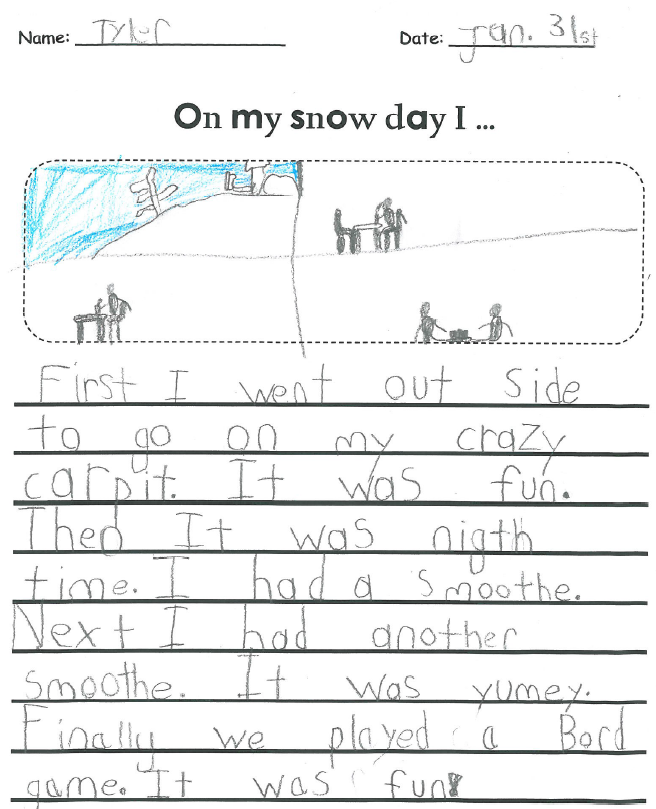 Name: Tyler Date: Jan. 31st
On my snow day I ...
First I went out side
to go on my crazy
carpit. It was fun.
Then It was nigth
time. I had a smoothe.
Next I had another
smoothe. It was yumey.
Finally we played a Bord
game. It was fun!